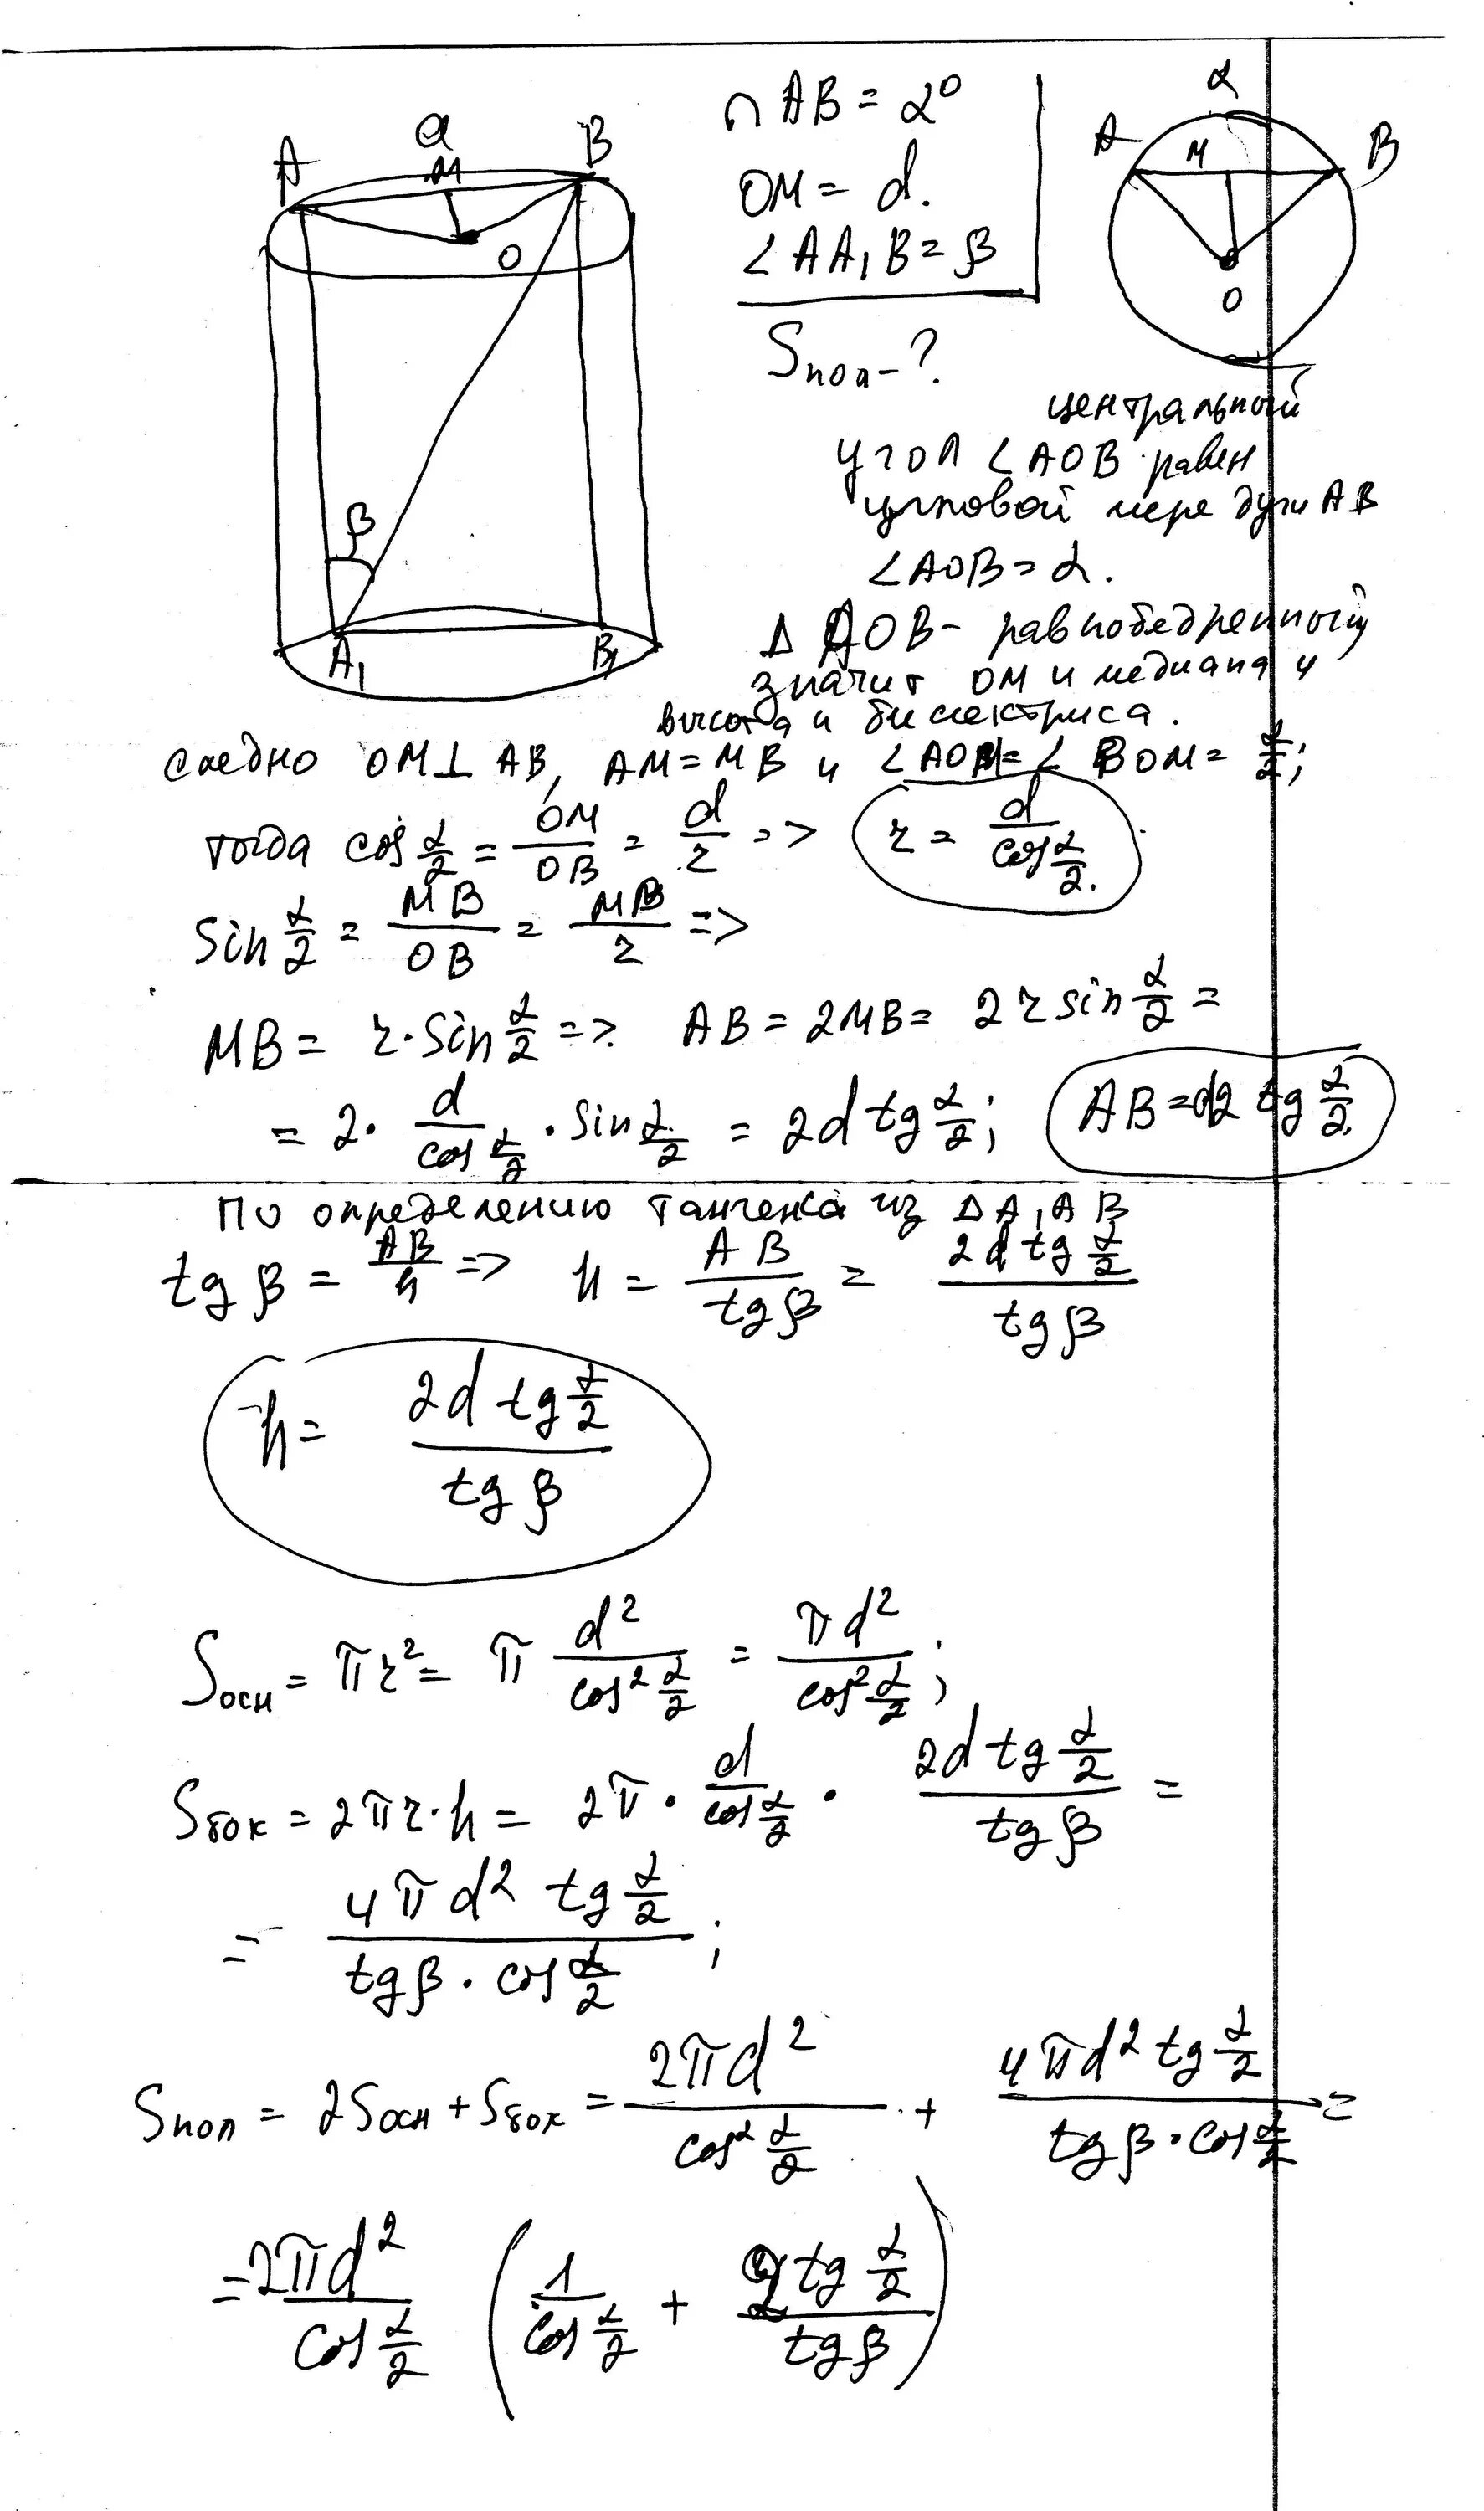 a
A M B
O
β
A₁ B₁
∩ AB = α⁰
OM = d.
∠AA₁B = β
Sпол - ?
α
A M B
O
центральный
угол ∠AOB равен
угловой мере дуги AB
∠AOB = α.
Δ AOB - равнобедренный
значит OM и медиана и
высота и биссектриса.
следно OM⊥AB, AM = MB и ∠AOM = ∠BOM = α/2;
тогда cos α/2 = OM/OB = d/r => r = d/cos α/2.
sin α/2 = MB/OB = MB/r =>
MB = r · sin α/2 => AB = 2MB = 2 r sin α/2 =
= 2 · d/cos α/2 · sin α/2 = 2d tg α/2; AB = d2 tg α/2
По определению тангенса из Δ A₁AB
tg β = AB/h => h = AB/tg β = 2d tg α/2 / tg β
h = 2d tg α/2 / tg β
Sосн = πr² = π d²/cos² α/2 = πd²/cos² α/2;
Sбок = 2πr·h = 2π · d/cos α/2 · 2d tg α/2 / tg β =
= 4πd² tg α/2 / tg β · cos α/2;
Sпол = 2Sосн + Sбок = 2πd²/cos² α/2 + 4πd² tg α/2 / tg β · cos α/2 =
= 2πd²/cos α/2 (1/cos α/2 + 2 tg α/2 / tg β)